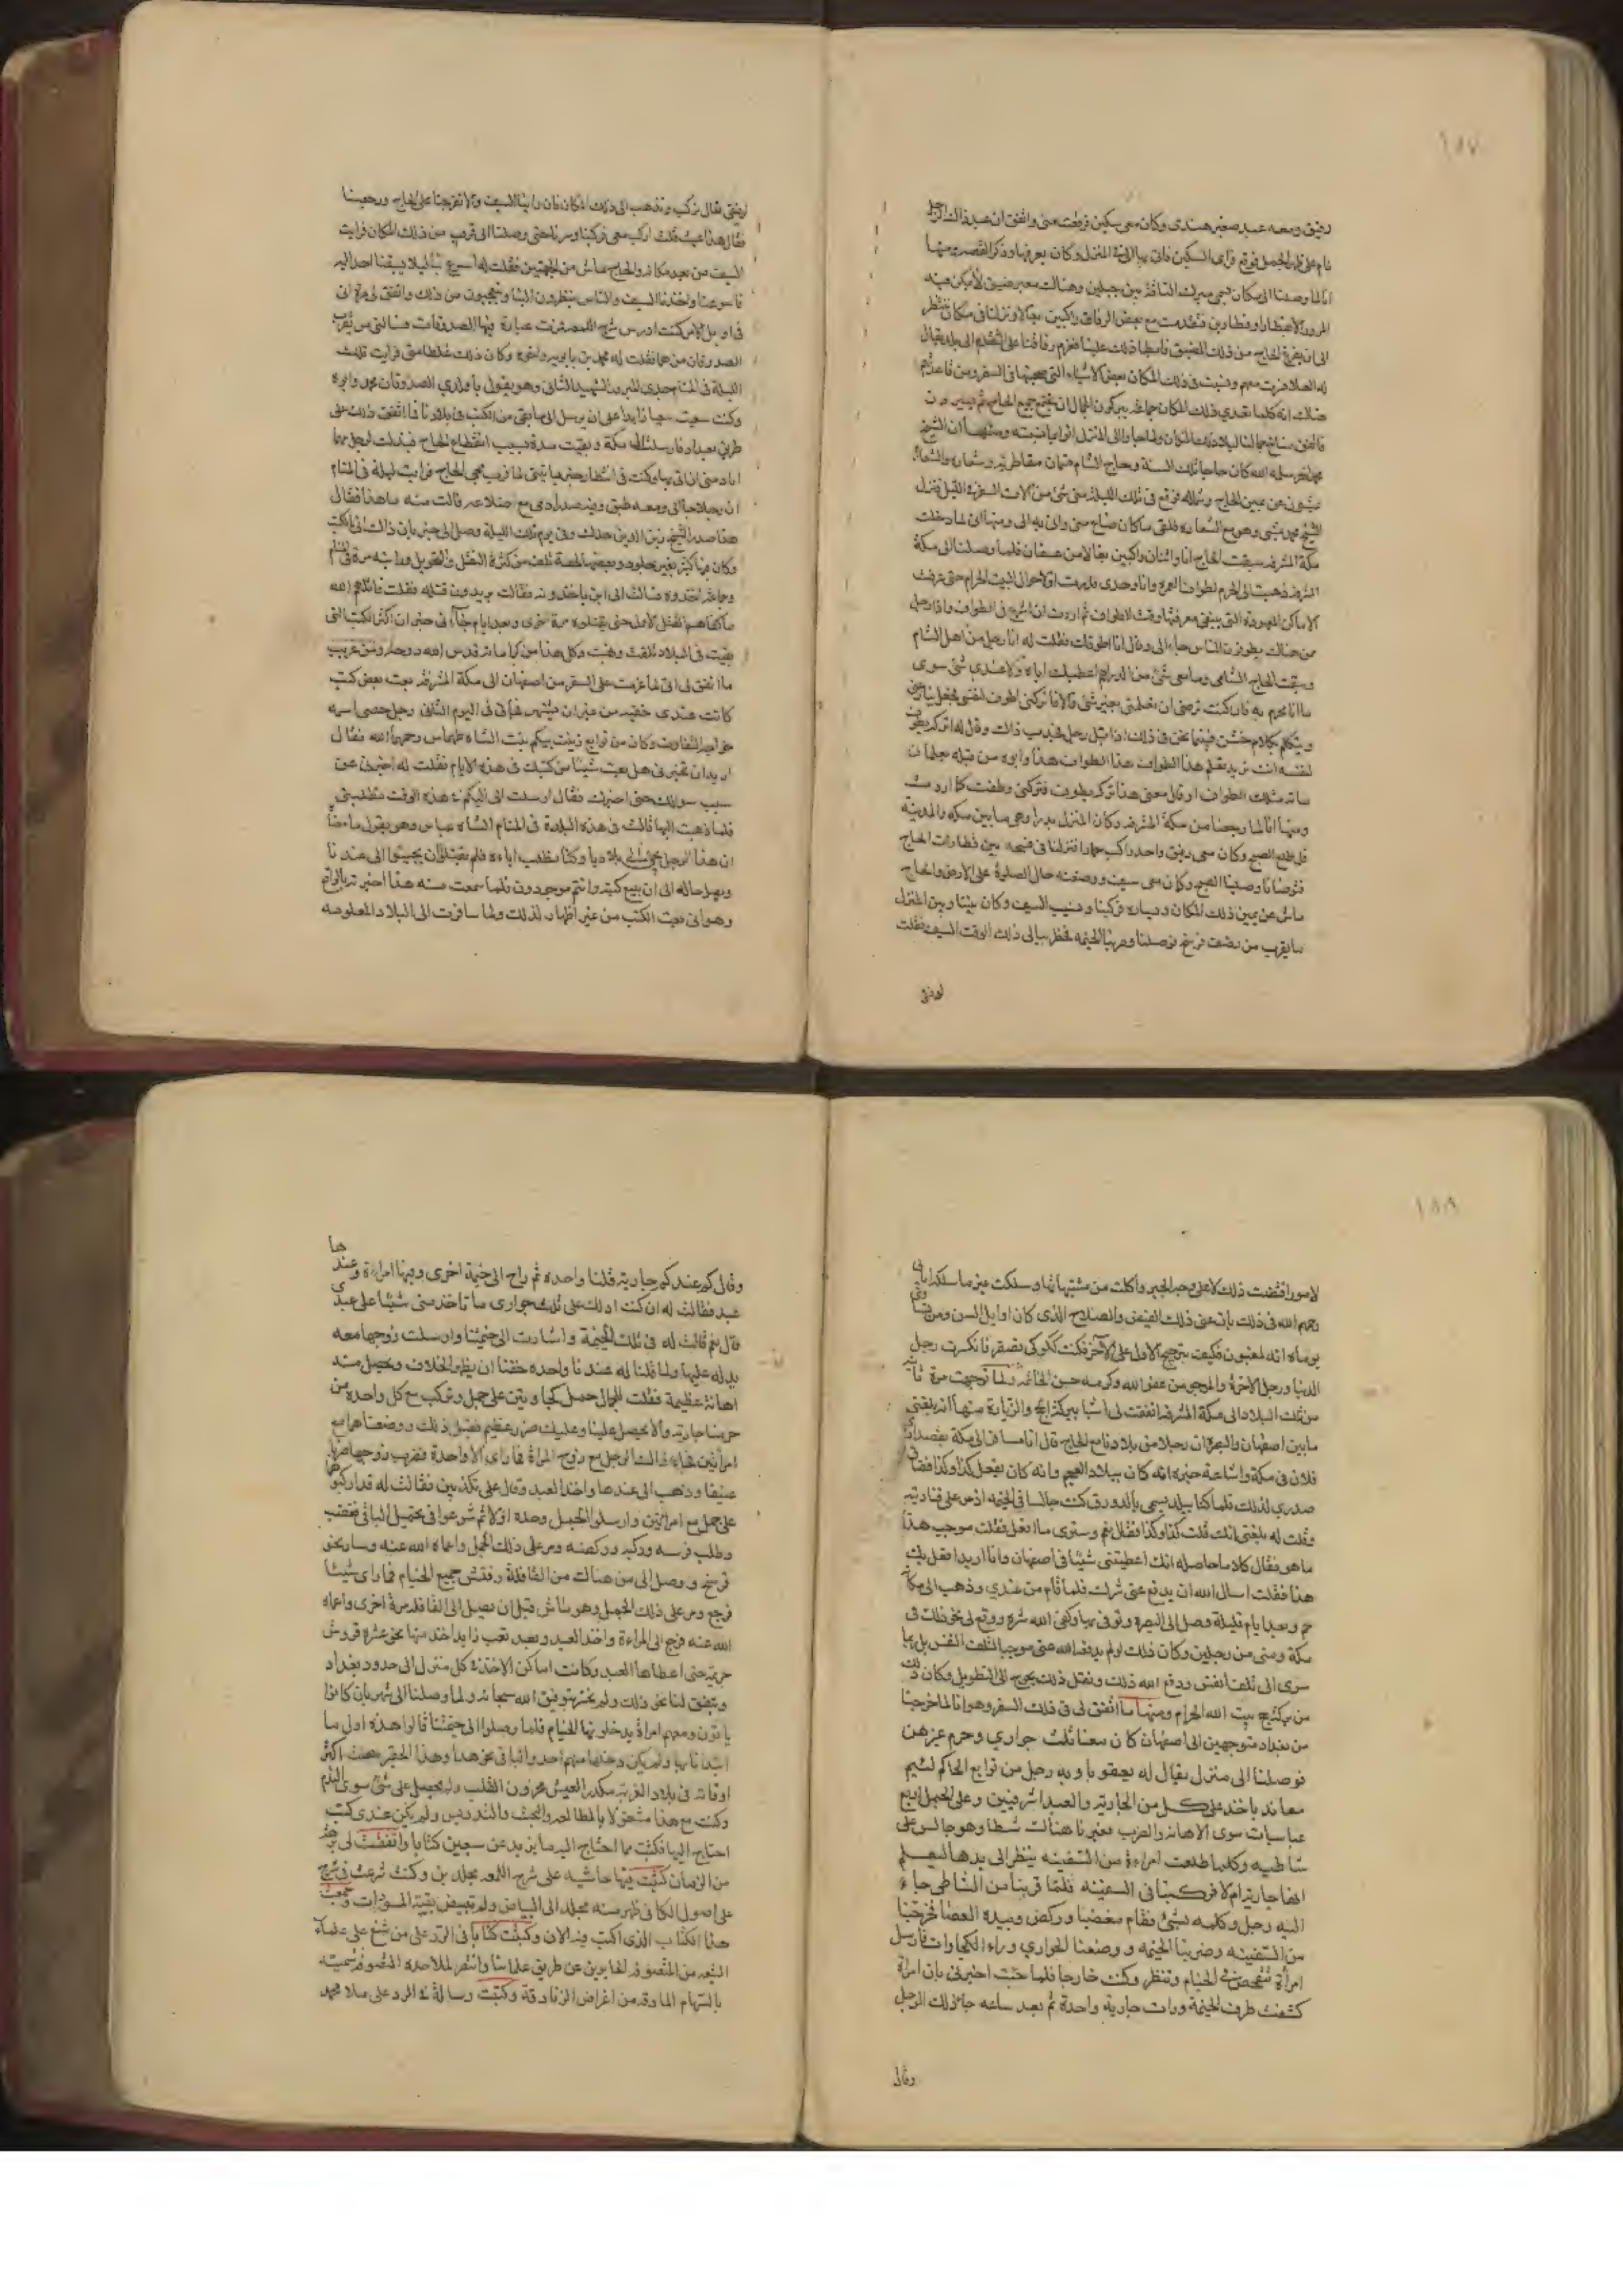 ١٨٧
رفيق ومعه عبد صغير هندي وكان معي سكين فوقعت مني واتفق ان عبد ذلك الرجل
نام على ظهر الجمل فوقع فراى السكين فاتى بها الى المنزل وكان يعرفها وذكر القصة ومنها
انا لما وصلنا الى مكان يسمى مبرك الناقة بين جبلين وهناك معبر ضيق لا يمكن فيه
المرور الا قطارا او قطارين فتقدمت مع بعض الرفاق راكبين بغالا ونزلنا في مكان ننتظر
الى ان يفرغ الحاج من ذلك المضيق فابطا ذلك علينا فعزم رفاقنا على التقدم الى بلد يقال
له العلا فرحت معهم ونسيت في ذلك المكان بعض الاشياء التي صحبتها في السفر ومن قاعدتهم
هناك انه كلما تعدى ذلك المكان جماعة يبركون الجمال ان يجتمع جميع الحاج ثم يسيرون
محمد الحر سلمه الله كان حاجا تلك السنة وحاج الشام قسمان مقاطرية وشعارة والشعارة
يمشون عن يمين الحاج وشماله فوقع في تلك الليلة مني شيء من آلات السفر في الليل فنزل
الشيخ محمد يمشي وهو مع الشعارة فلقي ما كان ضاع مني واتى به الي ومنها اني لما دخلت
مكة المشرفة سبقت الحاج انا واثنان راكبين بغالا من عسفان فلما وصلنا الى مكة
المشرفة ذهبت الى الحرم لطواف العمرة وانا وحدي فدرت اولا حوالي البيت الحرام حتى عرفت
الاماكن المعهودة التي ينبغي معرفتها وقت الطواف ثم اردت ان اشرع في الطواف واذا رجل
ممن هناك يطوفون الناس جاء الي وقال انا اطوفك فقلت له انا رجل من اهل الشام
وسبقت الحاج الشامي وما معي شيء من الدراهم اعطيك اياه ولا عندي شيء سوى
ما انا محرم به فان كنت ترضى ان تعلمني بغير شيء والا فاتركني اطوف لنفسي فجعل يمانعني
ويتكلم بكلام خشن فبينما نحن في ذلك اذ اقبل رجل فجذب ذاك وقال له اتركه يطوف
لنفسه انت تريد تعلم هذا الطواف هذا الطواف هذا وابوه من قبله معلمان
مائة مثلك الطواف او قال معنى هذا تركه يطوف فتركني وطفت كما اردت
ومنها انا لما رجعنا من مكة المشرفة وكان المنزل بدرا وهي ما بين مكة والمدينة
قبل طلوع الصبح وكان معي رفيق واحد راكب حمارا فنزلنا في فسحة بين قطارات الحاج
فتوضانا وصلينا الصبح وكان معي سيف ووضعته حال الصلوة على الارض والحاج
ماش عن يمين ذلك المكان ويساره فركبنا ونسيت السيف وكان بيننا وبين المنزل
ما يقرب من نصف فرسخ فوصلنا وضربنا الخيمة فخطر ببالي ذلك الوقت السيف فقلت
لرفيقي
لرفيقي تعال نركب ونذهب الى ذلك المكان فان راينا السيف والا تفرجنا على الحاج ورجعنا
فقال هذا عبث فقلت اركب معي فركبنا وسرنا حتى وصلنا الى قريب من ذلك المكان فرايت
السيف من بعيد مكانه والحاج ماش من الجهتين فقلت له اسرع بنا لئلا يسبقنا احد اليه
فاسرعنا واخذنا السيف والناس ينظرون الينا ويتعجبون من ذلك واتفق لي مرة اني
في اوايل الامر كنت ادرس شرح اللمعة فمرت عبارة فيها الصدوقان فسالني من يقرا
الصدوقان من هما فقلت له محمد بن بابويه واخوه وكان ذلك غلطا مني فرايت تلك
الليلة في المنام جدي المبرور الشهيد الثاني وهو يقول يا ولدي الصدوقان محمد وابوه
وكنت سعيت سعيا زايدا على ان يرسل الي ما بقي من الكتب في بلادنا فما اتفق ذلك على
طريق بغداد فارسلت الى مكة وبقيت مدة بسبب انقطاع الحاج
ان رجلا جاء الي ومعه طبق وفيه صدر ادمي مع اضلاعه فقلت منه ما هذا فقال
هذا صدر الشيخ زين الدين جدك وفي يوم تلك الليلة وصل الي خبر بان ذلك اني الكتب
ما كفاهم القتل الاول حتى يقتلوه مرة اخرى وبعد ايام جاءني خبر ان اكثر الكتب التي
بقيت في البلاد تلفت ونهبت وكل هذا من كراماته قدس الله روحه ومن غريب
ما اتفق لي اني لما عزمت على السفر من اصفهان الى مكة المشرفة بعت بعض كتب
كانت عندي خفية من غير ان يشتهر فجاءني في اليوم الثاني رجل خصي اسمه
خواجه التفاوت وكان من توابع زينب بيكم بنت الشاه طهماس رحمهما الله فقال
اريد ان تخبرني هل بعت شيئا من كتبك في هذه الايام فقلت له اخبرني عن
سبب سؤالك حتى اخبرك فقال ارسلت الي البيكم في هذه الوقت تطلبني
فلما ذهبت اليها قالت في هذه البلادة في المنام الشاه عباس وهو يقول ما معنى
ان هذا الرجل يجيء الى بلادنا وكنا نطلب اباءه فلم يقبلوا ان يجيئوا الى عندنا
ويصل حاله الى ان يبيع كتبه وانتم موجودون فلما سمعت منه هذا اخبرته بالواقع
وهو اني بعت الكتب من غير اظهار لذلك ولما سافرت الى البلاد المعلومة
١٨٨
لامور اقتضت ذلك لا على وجه الجبر واكلت من مشتبهاتها وسلكت غير ما سلكه اباني
رحمهم الله في ذلك بان عني ذلك الفيض والصلاح الذي كان اوايل السن ومن
يوماه انه لمغبون فكيف بترجيح الاول على الاخر فكنت ككوكي تقصقر فانكسرت رجل
الدنيا ورجل الاخرة والمرجو من عفو الله وكرمه حسن الخاتمة ولما توجهت مرة
من تلك البلاد الى مكة المشرفة اتفقت لي اشيا ببركة الحج والزيارة منها انه بلغني
ما بين اصفهان والبصرة ان رجلا من بلادنا مع الحاج قال انا مسافر الى مكة بقصد
فلان في مكة واشاعة خبره انه كان ببلاد العجم وانه كان يفعل كذا وكذا فضاق
صدري لذلك فلما كنا ببلد يسمى بالدورق كنت جالسا في الخيمة
فقلت له بلغني انك قلت كذا وكذا فقال نعم وسترى ما افعل فقلت موجب هذا
ما هو فقال كلاما حاصله انك اعطيتني شيئا في اصفهان وانا اريد افعل بك
هذا فقلت اسال الله ان يدفع عني شرك فلما قام من عندي وذهب الى مكانه
حم وبعد ايام قليلة وصل الى البصرة وتوفي بها وكفى الله شره ووقع لي نحو ذلك في
مكة ومنى من رجلين وكان ذلك لو لم يدفعه الله عني موجبا لتلف النفس بل ربما
سرى الى تلف انفس ودفع الله ذلك ونقل ذلك يحوج الى التطويل وكان ذلك
من بركة حج بيت الله الحرام ومنها ما اتفق لي في ذلك السفر وهو انا لما خرجنا
من بغداد متوجهين الى اصفهان كان معنا ثلث جواري وحرم غيرهن
فوصلنا الى منزل يقال له يعقوبا وبه رجل من توابع الحاكم لئيم
معاند ياخذ على كل من الجارية والعبد اشرفيين وعلى الحمل اربع
عباسيات سوى الاهانة والضرب فعبرنا هنالك شطا وهو جالس على
شاطيه وكلما طلعت امراة من السفينة ينظر الى يدها ليعلم
انها جارية ام لا فركبنا في السفينة فلما قربنا من الشاطي جاء
اليه رجل وكلمه بشيء فقام مغضبا وركض وبيده العصا فخرجنا
من السفينة وضربنا الخيمة ووضعنا الجواري وراء الكجاوات فارسل
امراة تتفحص في الخيام وتنظر وكنت خارجا فلما جئت اخبرني بان امراة
كشفت طرف الخيمة ورات جارية واحدة ثم بعد ساعة جاء ذلك الرجل
وقال
وقال كم عندكم جارية قلنا واحدة ثم راح الى خيمة اخرى وفيها امراة وعندها
عبد فقالت له ان كنت ادلك على ثلث جواري ما تاخذ مني شيئا على عبدي
قال نعم قالت له في تلك الخيمة واشارت الى خيمتنا وارسلت زوجها معه
يدله عليها ولما قلنا له عندنا واحدة خفنا ان يظهر الخلاف ويحصل منه
اهانة عظيمة فقلت للجمال حمل كجاوتين على جمل وتركب مع كل واحدة من
حرمنا جارية والا يحصل علينا وعليك ضرر عظيم ففعل ذلك ووضعناهما مع
امراتين فجاء ذلك الرجل مع زوج المراة فما راى الا واحدة فضرب زوجها ضربا
عنيفا وذهب الى عندها واخذ العبد وقال علي تكذبين فقالت له قد اركبوهما
على جمل مع امراتين وارسلوا الجمل وحده اولا ثم شرعوا في تحميل الباقي فغضب
وطلب فرسه وركبه وركضه ومر على ذلك الجمل واعماه الله عنه وسار نحو
فرسخ ووصل الى من هنالك من القافلة وفتش جميع الخيام فما راى شيئا
فرجع ومر على ذلك الجمل وهو ماش قبل ان يصل الى القافلة مرة اخرى واعماه
الله عنه فرجع الى المراءة واخذ العبد وبعد تعب زايد اخذ منها نحو عشرة قروش
حتى اعطاها العبد وكانت اماكن الاخذ في كل منزل الى حدود بغداد
ويتفق لنا نحو ذلك ولم نخسر بتوفيق الله سبحانه ولما وصلنا الى شهربان كانوا
ياتون ومعهم امراة يدخلونها الخيام فلما وصلوا الى خيمتنا قالوا هذه اول ما
ابتدانا بها ولم يكن دخلها منهم احد والباقي نحو هذا وهذا الحقير مضت اكثر
اوقاته في بلاد الغربة مكدر العيش محزون القلب ولم يحصل على شيء سوى الندم
وكنت مع هذا مشغولا بالمطالعة والبحث والتدريس ولم يكن عندي كتب
احتاج اليها فكتبت مما احتاج اليه ما يزيد عن سبعين كتابا واتفقت لي برهة
من الزمان كتبت فيها حاشية على شرح اللمعة مجلدين وكنت شرعت في شرح
على اصول الكافي ظهر منه مجلد الى البياض ولم تبيض بقية المسودات وجمعت
هذا الكتاب الذي اكتب فيه الان وكتبت كتابا في الرد على من شنع على علماء
الشيعة من المتصوفة الحايدين عن طريق علمائنا وانتصر للملاحدة المتصوفة سميته
بالسهام المارقة من اغراض الزنادقة وكتبت رسالة في الرد على ملا محمد